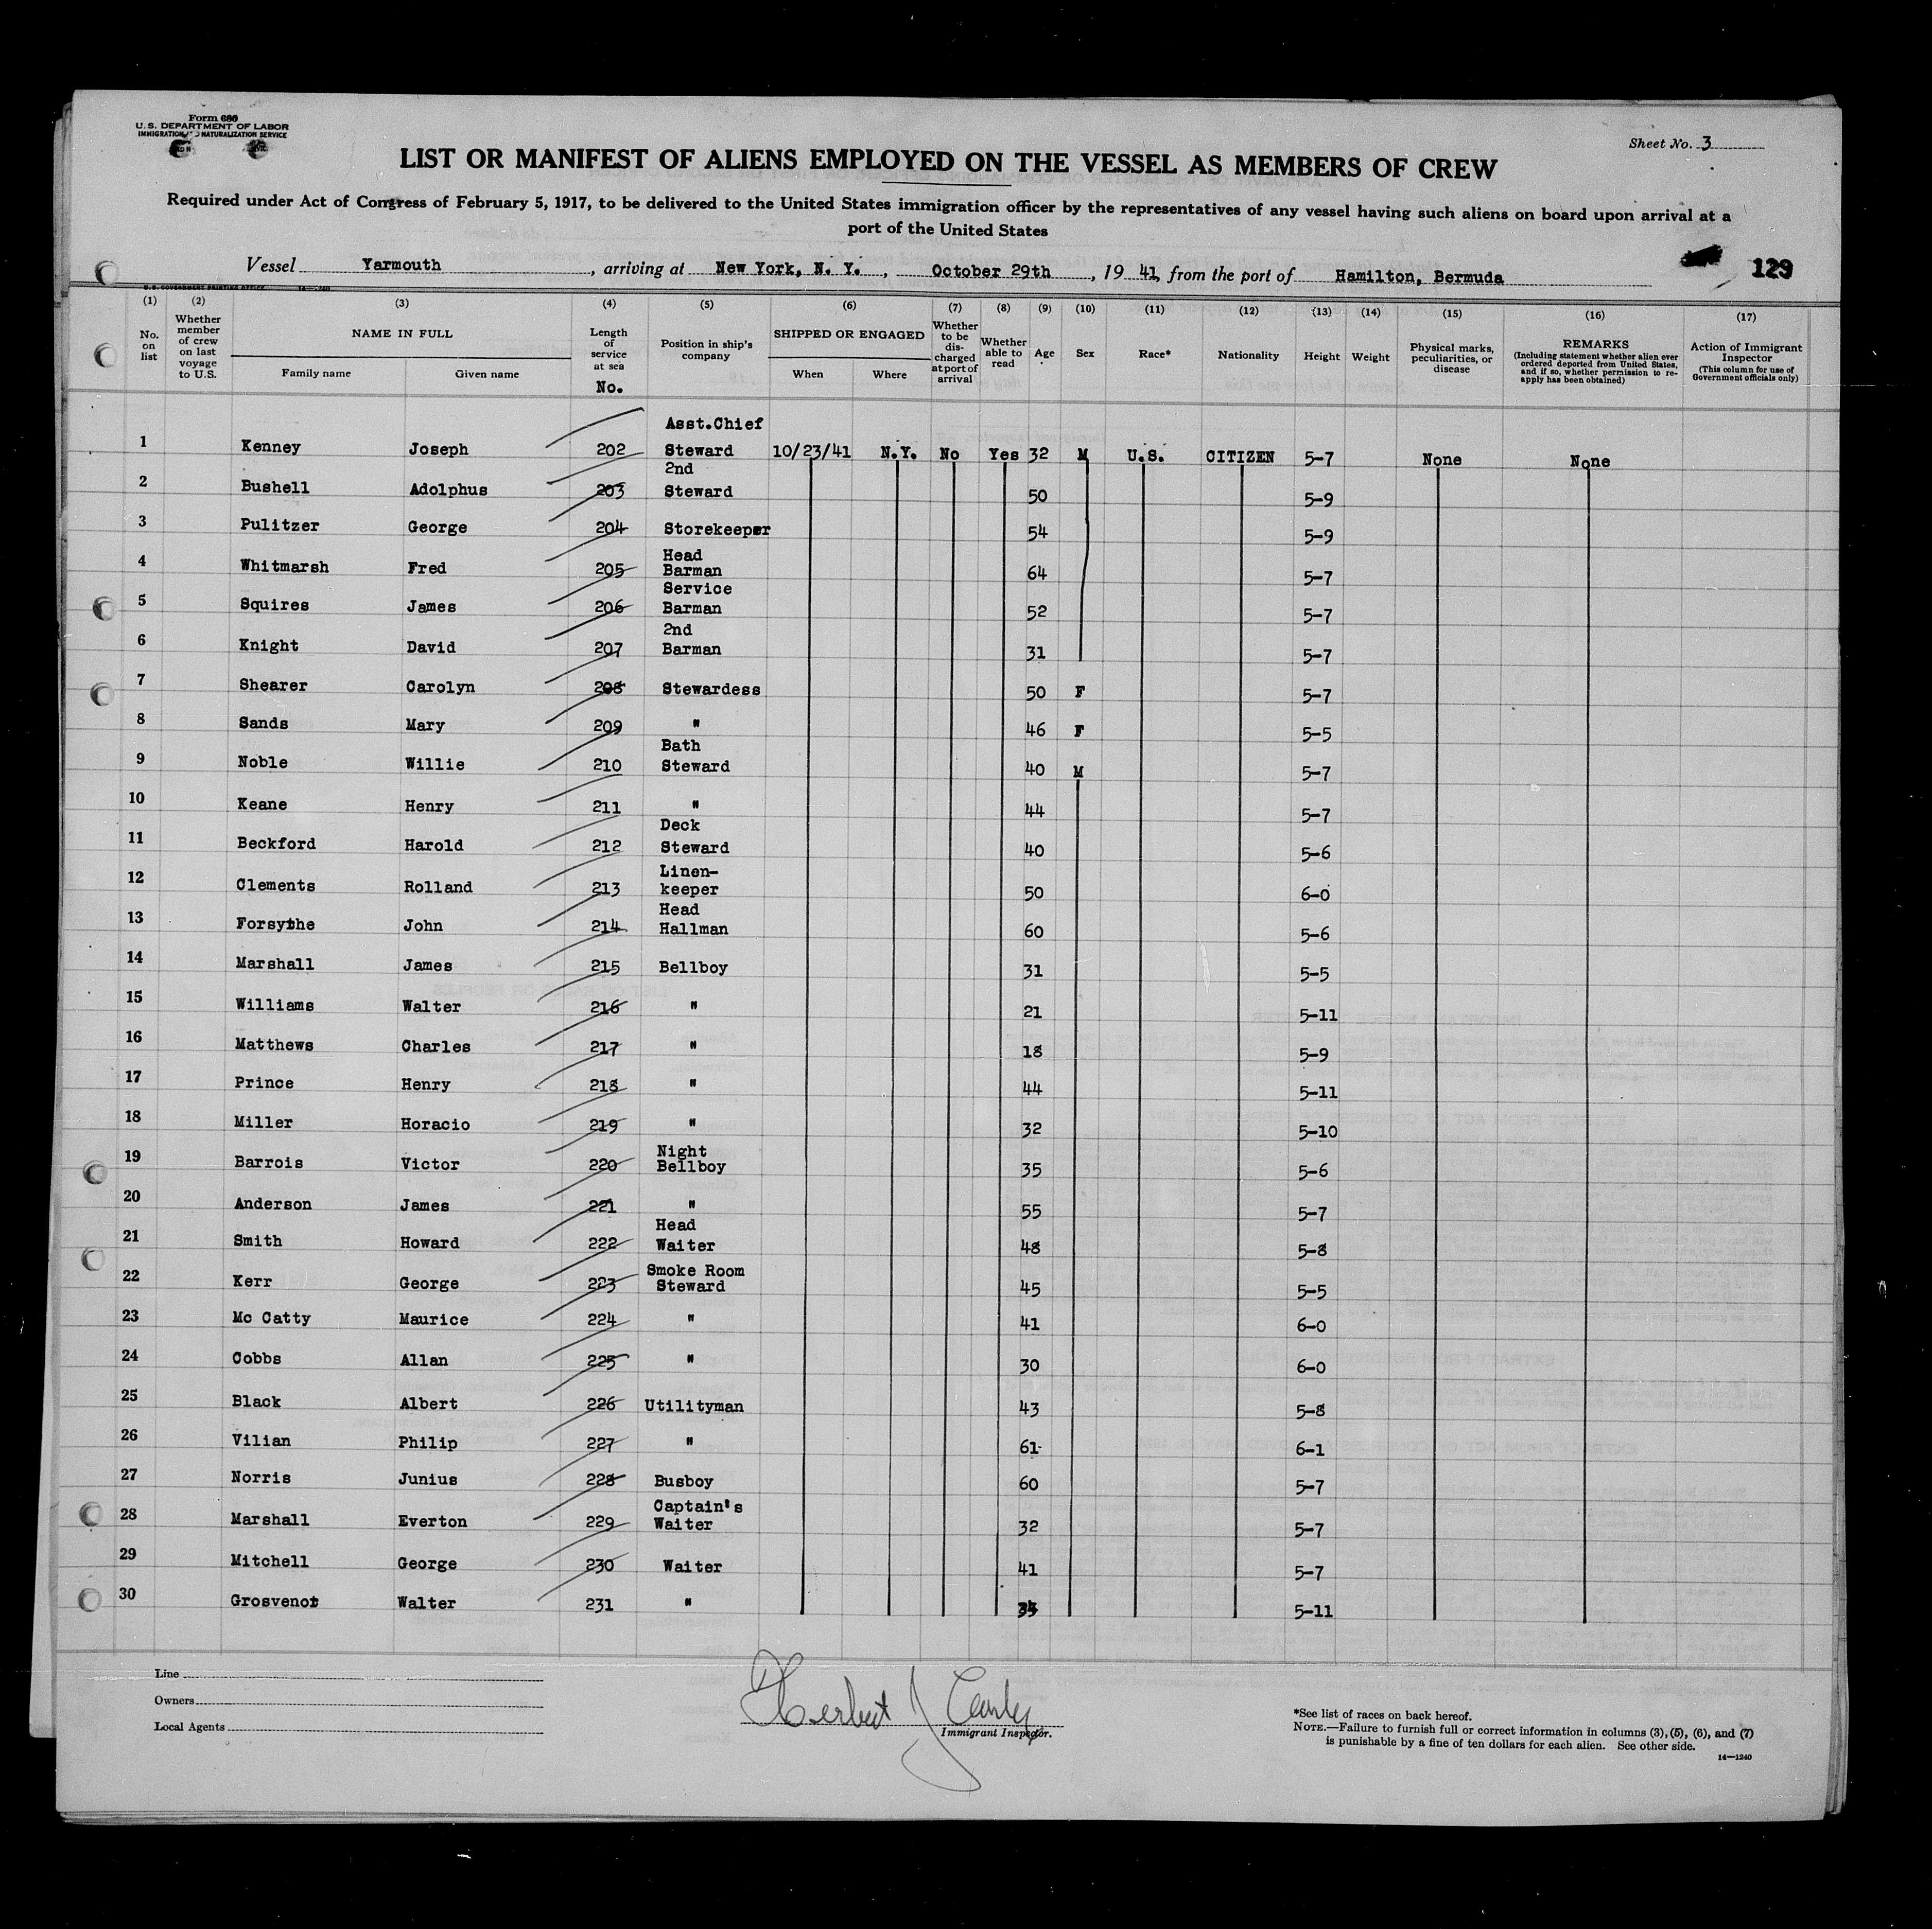 Form 680
U. S. DEPARTMENT OF LABOR
IMMIGRATION AND NATURALIZATION SERVICE
Sheet No. 3
LIST OR MANIFEST OF ALIENS EMPLOYED ON THE VESSEL AS MEMBERS OF CREW
Required under Act of Congress of February 5, 1917, to be delivered to the United States immigration officer by the representatives of any vessel having such aliens on board upon arrival at a
port of the United States
Vessel Yarmouth, arriving at New York, N. Y., October 29th, 19 41, from the port of Hamilton, Bermuda
129
U.S. GOVERNMENT PRINTING OFFICE 14—1240
(1) (2) (3) (4) (5) (6) (7) (8) (9) (10) (11) (12) (13) (14) (15) (16) (17)
No. on list
Whether member of crew on last voyage to U.S.
NAME IN FULL
Family name Given name
Length of service at sea
No.
Position in ship's company
SHIPPED OR ENGAGED
When Where
Whether to be discharged at port of arrival
Whether able to read
Age
Sex
Race*
Nationality
Height
Weight
Physical marks, peculiarities, or disease
REMARKS
(Including statement whether alien ever ordered deported from United States, and if so, whether permission to reapply has been obtained)
Action of Immigrant Inspector
(This column for use of Government officials only)
1 Kenney Joseph 202 Asst.Chief Steward 10/23/41 N.Y. No Yes 32 M U.S. CITIZEN 5-7 None None
2 Bushell Adolphus 203 2nd Steward 50 5-9
3 Pulitzer George 204 Storekeeper 54 5-9
4 Whitmarsh Fred 205 Head Barman 64 5-7
5 Squires James 206 Service Barman 52 5-7
6 Knight David 207 2nd Barman 31 5-7
7 Shearer Carolyn 208 Stewardess 50 F 5-7
8 Sands Mary 209 " 46 F 5-5
9 Noble Willie 210 Bath Steward 40 M 5-7
10 Keane Henry 211 " 44 5-7
11 Beckford Harold 212 Deck Steward 40 5-6
12 Clements Rolland 213 Linen-keeper 50 6-0
13 Forsythe John 214 Head Hallman 60 5-6
14 Marshall James 215 Bellboy 31 5-5
15 Williams Walter 216 " 21 5-11
16 Matthews Charles 217 " 18 5-9
17 Prince Henry 218 " 44 5-11
18 Miller Horacio 219 " 32 5-10
19 Barrois Victor 220 Night Bellboy 35 5-6
20 Anderson James 221 " 55 5-7
21 Smith Howard 222 Head Waiter 48 5-8
22 Kerr George 223 Smoke Room Steward 45 5-5
23 Mc Catty Maurice 224 " 41 6-0
24 Cobbs Allan 225 " 30 6-0
25 Black Albert 226 Utilityman 43 5-8
26 Vilian Philip 227 " 61 6-1
27 Norris Junius 228 Busboy 60 5-7
28 Marshall Everton 229 Captain's Waiter 32 5-7
29 Mitchell George 230 Waiter 41 5-7
30 Grosvenor Walter 231 " 5-11
Line
Owners
Local Agents
Herbert J
Immigrant Inspector.
*See list of races on back hereof.
NOTE.—Failure to furnish full or correct information in columns (3), (5), (6), and (7)
is punishable by a fine of ten dollars for each alien. See other side.
14—1240